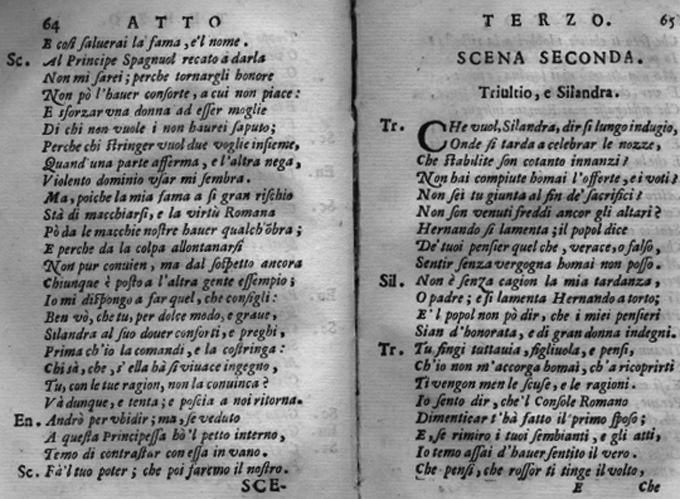 64 ATTO
E così saluerai la fama, e'l nome.
Sc. Al Principe Spagnuol recato à darla
Non mi sarei; perche tornargli honore
Non pò l'hauer consorte, a cui non piace:
E sforzar vna donna ad esser moglie
Di chi non vuole i non haurei saputo;
Perche chi stringer vuol due voglie insieme,
Quand'una parte afferma, e l'altra nega,
Violento dominio vsar mi sembra.
Ma, poiche la mia fama a sì gran rischio
Stà di macchiarsi, e la virtù Romana
Pò da le macchie nostre hauer qualch'ōbra;
E perche da la colpa allontanarsi
Non pur conuien, ma dal sospetto ancora
Chiunque è posto a l'altra gente essempio;
Io mi dispongo a far quel, che consigli:
Ben vò, che tu, per dolce modo, e graue,
Silandra al suo douer conforti, e preghi,
Prima ch'io la comandi, e la costringa:
Chi sà, che, s'ella hà sì viuace ingegno,
Tu, con le tue ragion, non la conuinca?
Và dunque, e tenta; e poscia a noi ritorna.
En. Andrò per vbidir; ma, se veduto
A questa Principessa hò'l petto interno,
Temo di contrastar con essa in vano.
Sc. Fà'l tuo poter; che poi faremo il nostro.
SCE-
TERZO. 65
SCENA SECONDA.
Triultio, e Silandra.
Tr. CHe vuol, Silandra, dir sì lungo indugio,
Onde si tarda a celebrar le nozze,
Che stabilite son cotanto innanzi?
Non hai compiute homai l'offerte, e i voti?
Non sei tu giunta al fin de' sacrifici?
Non son venuti freddi ancor gli altari?
Hernando si lamenta; il popol dice
De' tuoi pensier quel che, verace, o falso,
Sentir senza vergogna homai non posso.
Sil. Non è senza cagion la mia tardanza,
O padre; e si lamenta Hernando a torto;
E'l popol non pò dir, che i miei pensieri
Sian d'honorata, e di gran donna indegni.
Tr. Tu fingi tuttauia, figliuola, e pensi,
Ch'io non m'accorga homai, ch'a ricoprirti
Ti vengon men le scuse, e le ragioni.
Io sento dir, che'l Console Romano
Dimenticar t'hà fatto il primo sposo;
E, se rimiro i tuoi sembianti, e gli atti,
Io temo assai d'hauer sentito il vero.
Che pensi, che rossor ti tinge il volto,
E Che